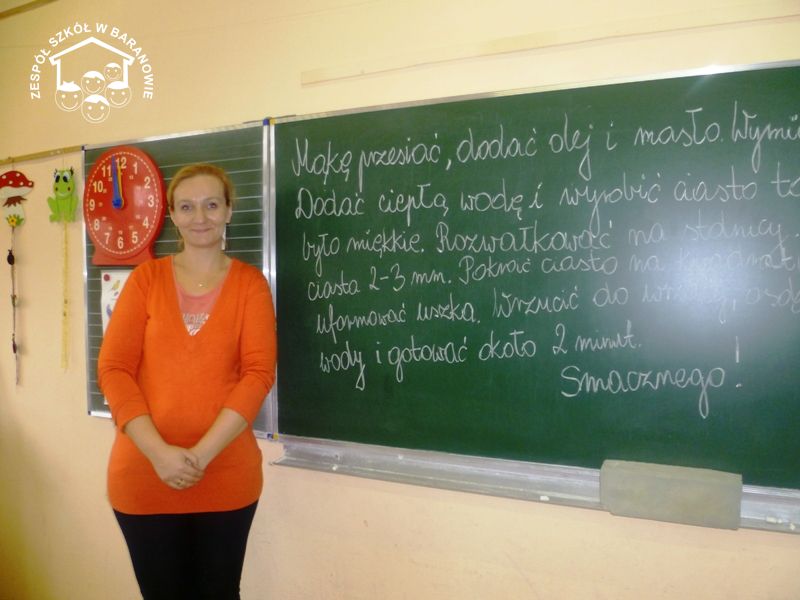 ZESPÓŁ SZKÓŁ W BARANOWIE
Mąkę przesiać, dodać olej i masło. Wymi
Dodać ciepłą wodę i wyrobić ciasto
było miękkie. Rozwałkować na stolnicy.
ciasta 2-3 mm. Pokroić ciasto na kwadrat
uformować uszka. Wrzucić do wrzącej,
wody i gotować około 2 minut.
Smacznego!
12
1
2
3
4
5
6
7
8
9
10
11